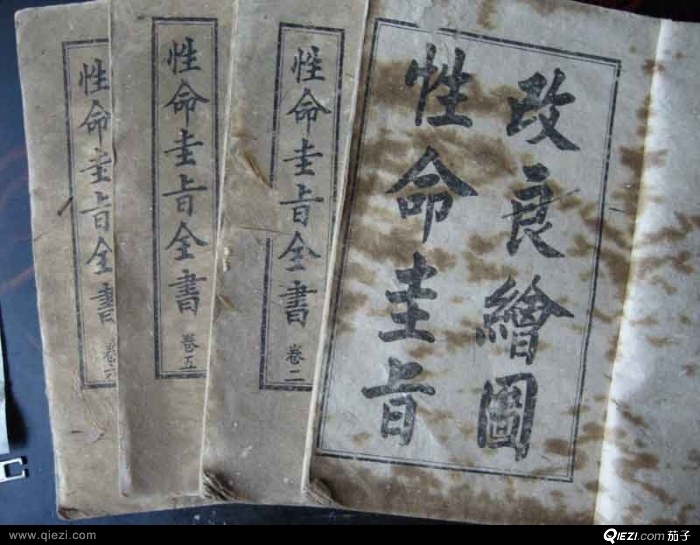 改良繪圖
性命圭旨
性命圭旨全書
卷二
性命圭旨全書
卷五
性命圭旨全書
卷六
www.qiezi.com
QIEZI.com 茄子